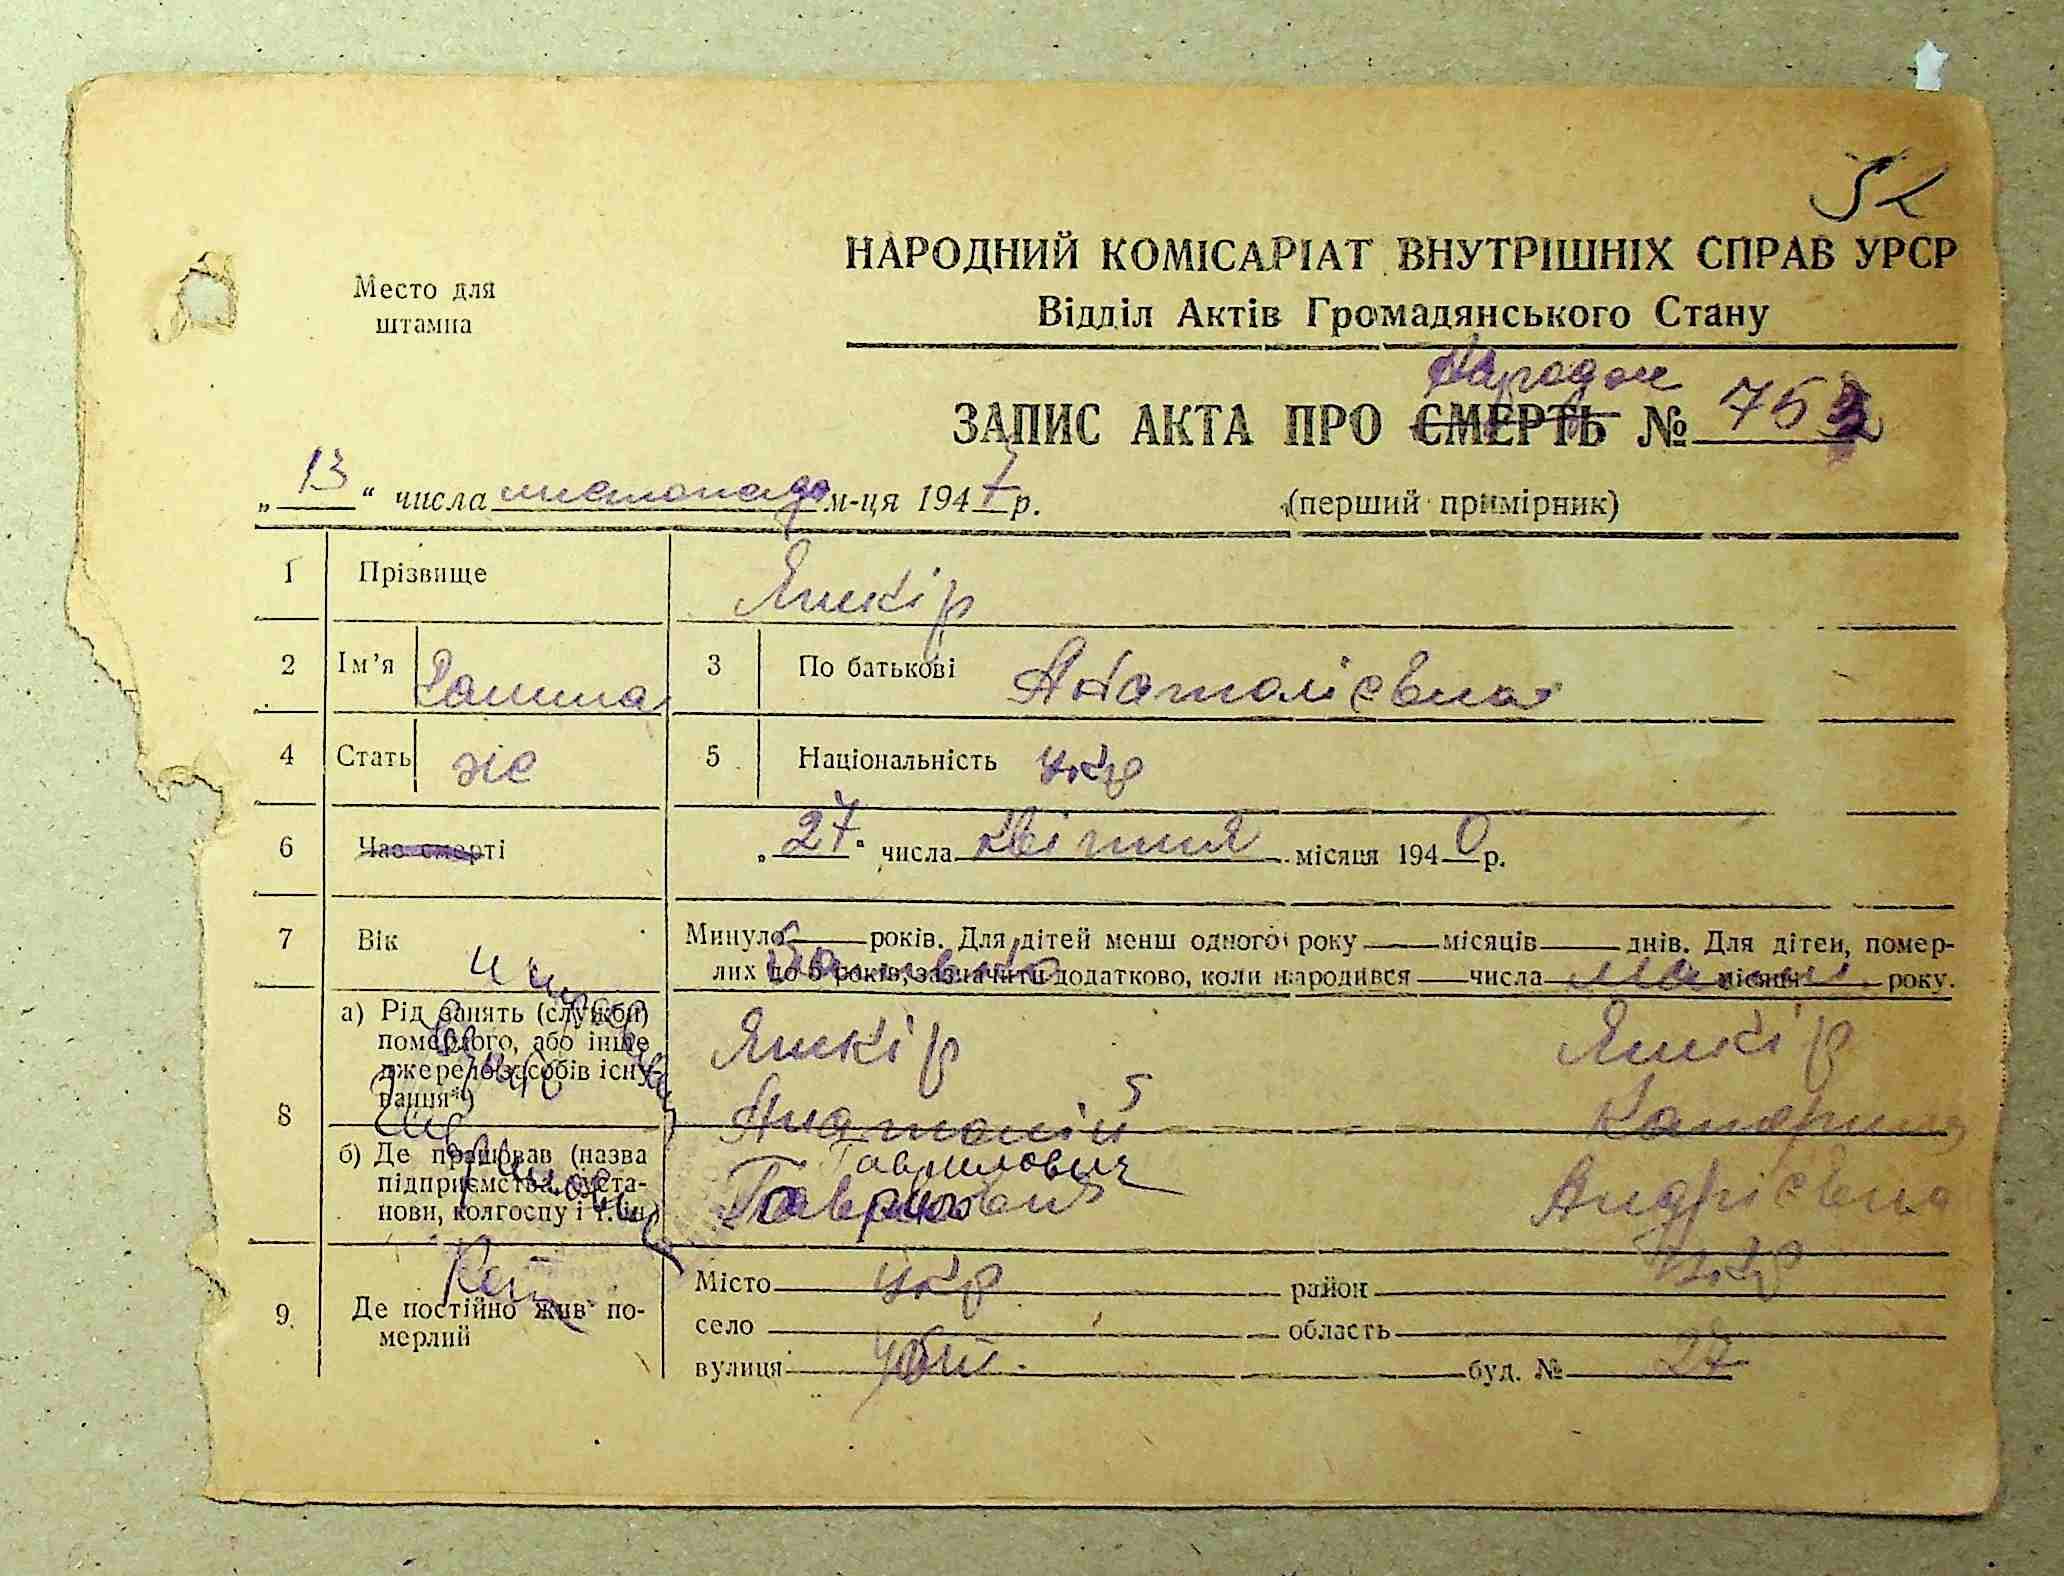 Место для
штампа
НАРОДНИЙ КОМІСАРІАТ ВНУТРІШНІХ СПРАВ УРСР
Відділ Актів Громадянського Стану
ЗАПИС АКТА ПРО СМЕРТЬ № 753
„13“ числа листопада м-ця 1947 р.
(перший примірник)
1 Прізвище Яшкір
2 Ім'я Галина 3 По батькові Анатолієвна
4 Стать жіс 5 Національність укр
6 Час смерті „27“ числа квітня місяця 1940 р.
7 Вік Минуло років. Для дітей менш одного року місяців днів. Для дітей, помер-
лих до 5 років, зазначити додатково, коли народився числа місяця року.
8 а) Рід занять (служби)
померлого, або інше
джерело засобів існу-
вання*)
Яшкір Яшкір
Анатолій Катерина
б) Де працював (назва
підприємства, уста-
нови, колгоспу і т. ін.)
Гаврилович
Андрієвна
9. Де постійно жив по-
мерлий
Місто укр район укр
село область
вулиця буд. № 27